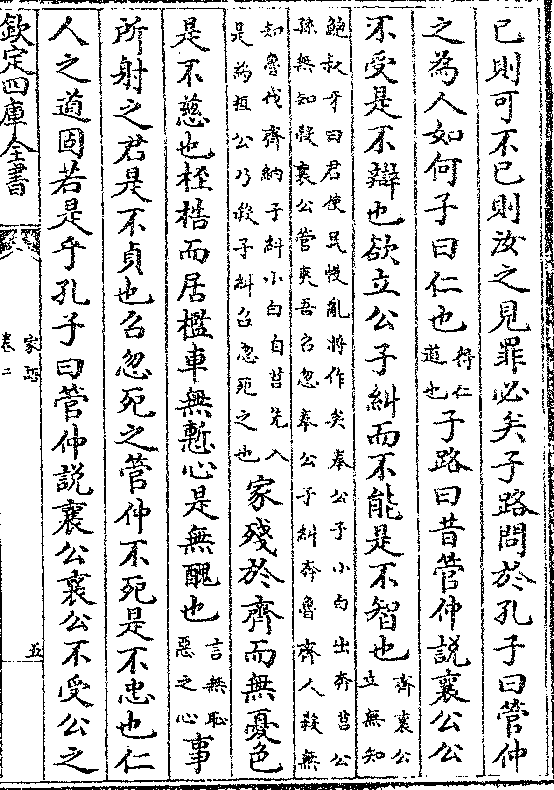 已則可不已則汝之見罪必矣子路問於孔子曰管仲
之為人如何子曰仁也得仁道也子路曰昔管仲説襄公公
不受是不辯也欲立公子糾而不能是不智也齊襄公立無知
鮑叔牙曰君使民慢亂將作矣奉公子小白出奔莒公
孫無知殺襄公管夷吾召忽奉公子糾奔魯齊人殺無
知魯伐齊納子糾小白自莒先入是為桓公乃殺子糾召忽死之也家殘於齊而無憂色
是不慈也桎梏而居檻車無慙心是無醜也言無恥惡之心事
所射之君是不貞也召忽死之管仲不死是不忠也仁
人之道固若是乎孔子曰管仲説襄公襄公不受公之
欽定四庫全書
家語
卷二
五